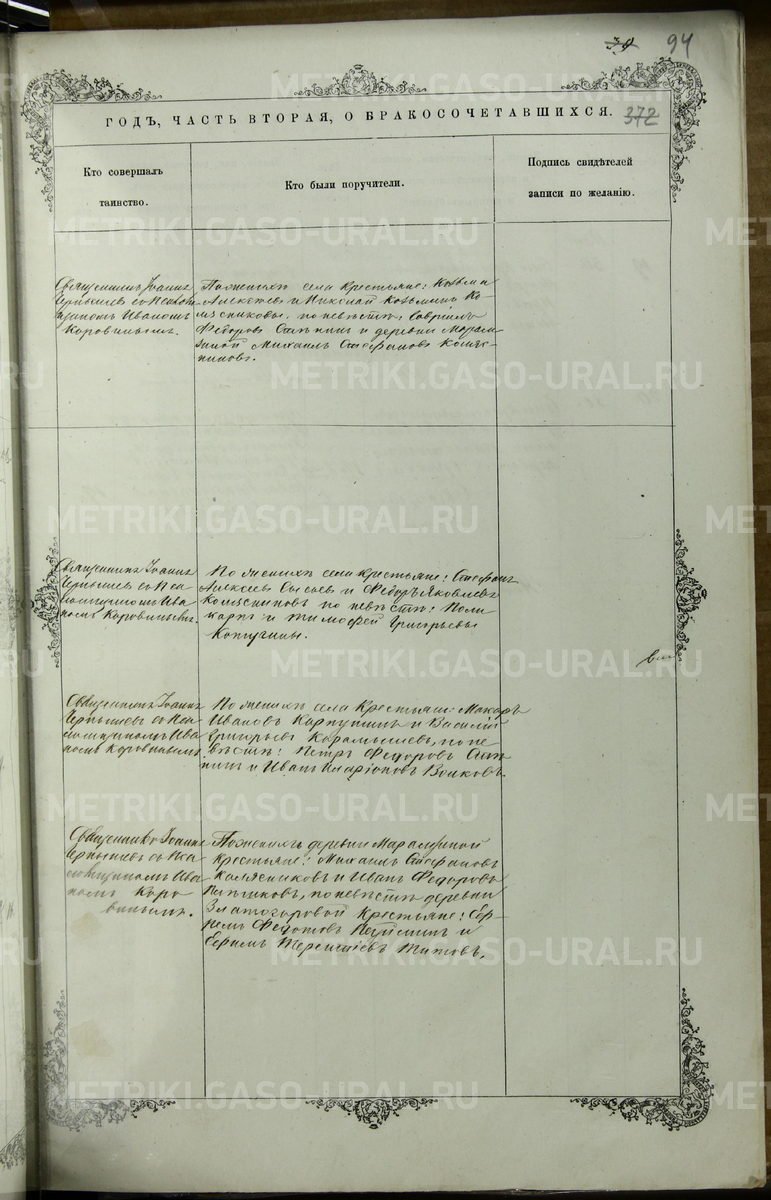 94
372
ГОДЪ, ЧАСТЬ ВТОРАЯ, О БРАКОСОЧЕТАВШИХСЯ.
Кто совершалъ
таинство.
Кто были поручители.
Подпись свидѣтелей
записи по желанію.
Священникъ Іоаннъ
Чернышев съ
Иваномъ
Коровинымъ.
По женихѣ села Крестьяне: Козьма
Алексѣевъ и Николай Козьминъ
по невѣстѣ: Гавріилъ
Федоровъ и деревни
Михаилъ Стефановъ
Священникъ Іоаннъ
Чернышев съ Пса-
ломщикомъ Ива-
номъ Коровинымъ.
По женихѣ села Крестьяне: Стефанъ
Алексеевъ Сысоев и Федоръ Яковлевъ
Колясниковъ по невѣстѣ: Поли-
карпъ и Тимофей Григорьевы
Копугины.
Священникъ Іоаннъ
Чернышев съ Пса-
ломщикомъ Ива-
номъ Коровинымъ
По женихѣ села Крестьяне: Макаръ
Ивановъ Карпушин и Василій
Григорьевъ Карамышевъ, по не-
вѣстѣ: Петръ Федоровъ
и Иванъ Иларіоновъ Волковъ.
Священникъ Іоаннъ
Чернышев съ Пса-
ломщикомъ Ива-
номъ Коро-
винымъ.
По женихѣ деревни
Крестьяне: Михаилъ Стефановъ
Колясниковъ и Иванъ Федоровъ
по невѣстѣ деревни
Златогоровой Крестьяне: Еф-
ремъ Федотовъ и
Ефимъ Терентіевъ Титовъ.
METRIKI.GASO-URAL.RU